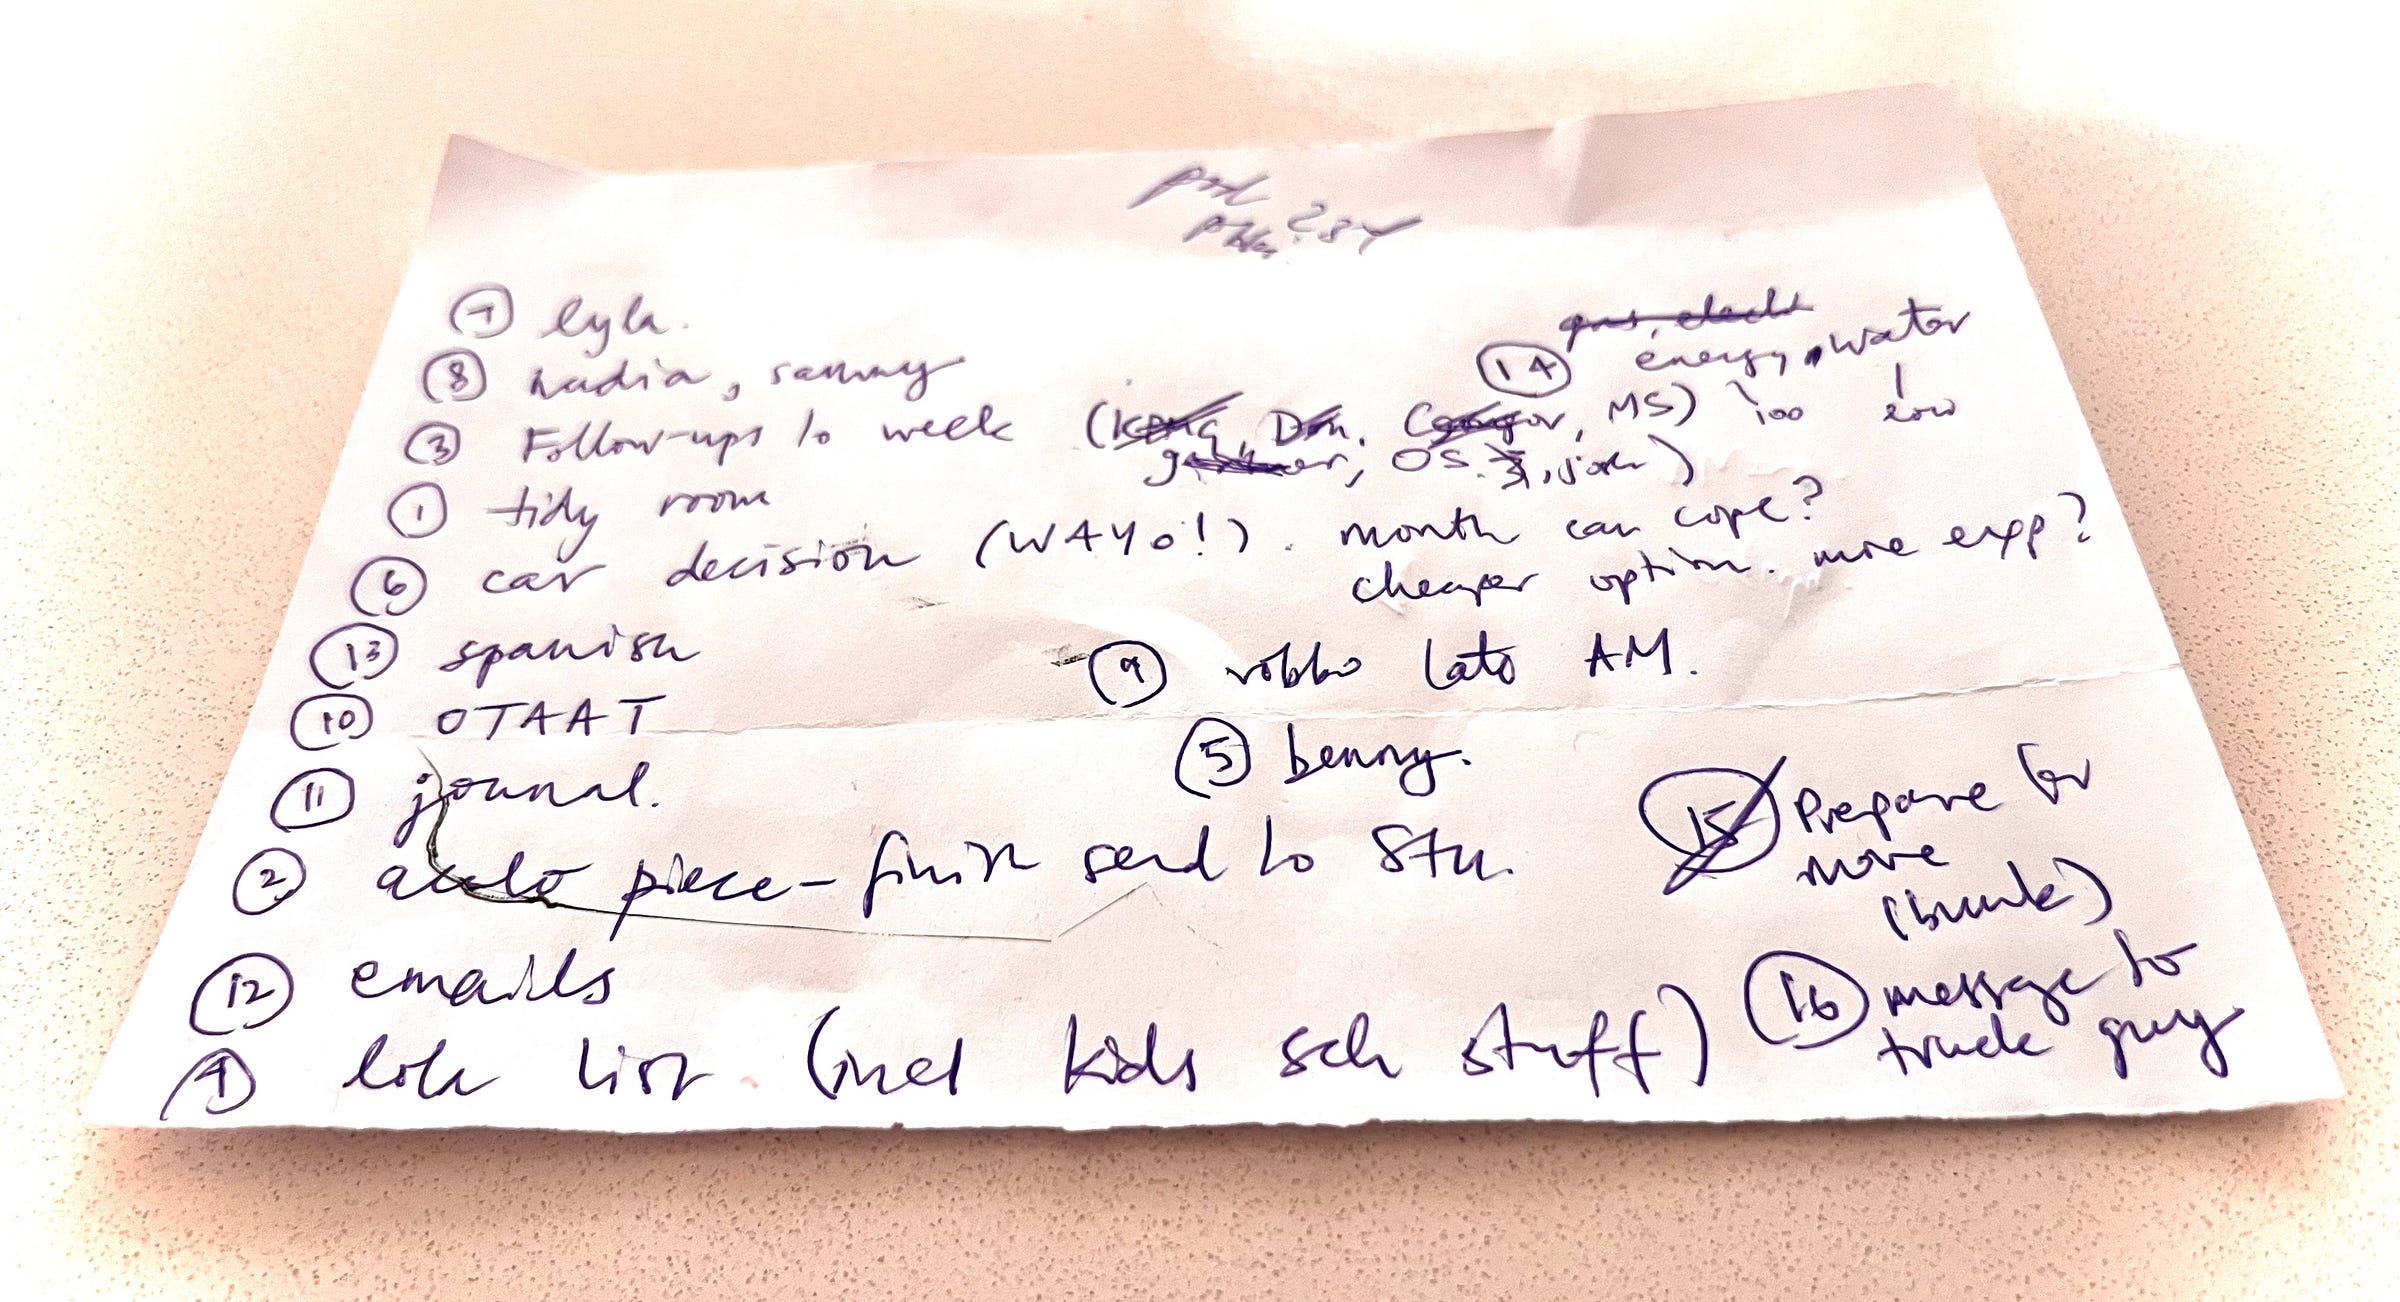 ⑦ lyla.
⑧ nadia, sammy
⑭ energy, water
100 low
③ Follow-ups to week (Kong, Don, Connor, MS)
gardener, OS, josh)
① tidy room
⑥ car decision (WAYO!). month can cope?
cheaper option. more exp?
⑬ spanish
⑨ robbo late AM.
⑩ OTAAT
⑤ benny.
⑪ journal.
⑮ Prepare for
move
(bunk)
② piece - finish send to Stu.
⑫ emails
⑯ message to
truck guy
④ list (incl kids sch stuff)